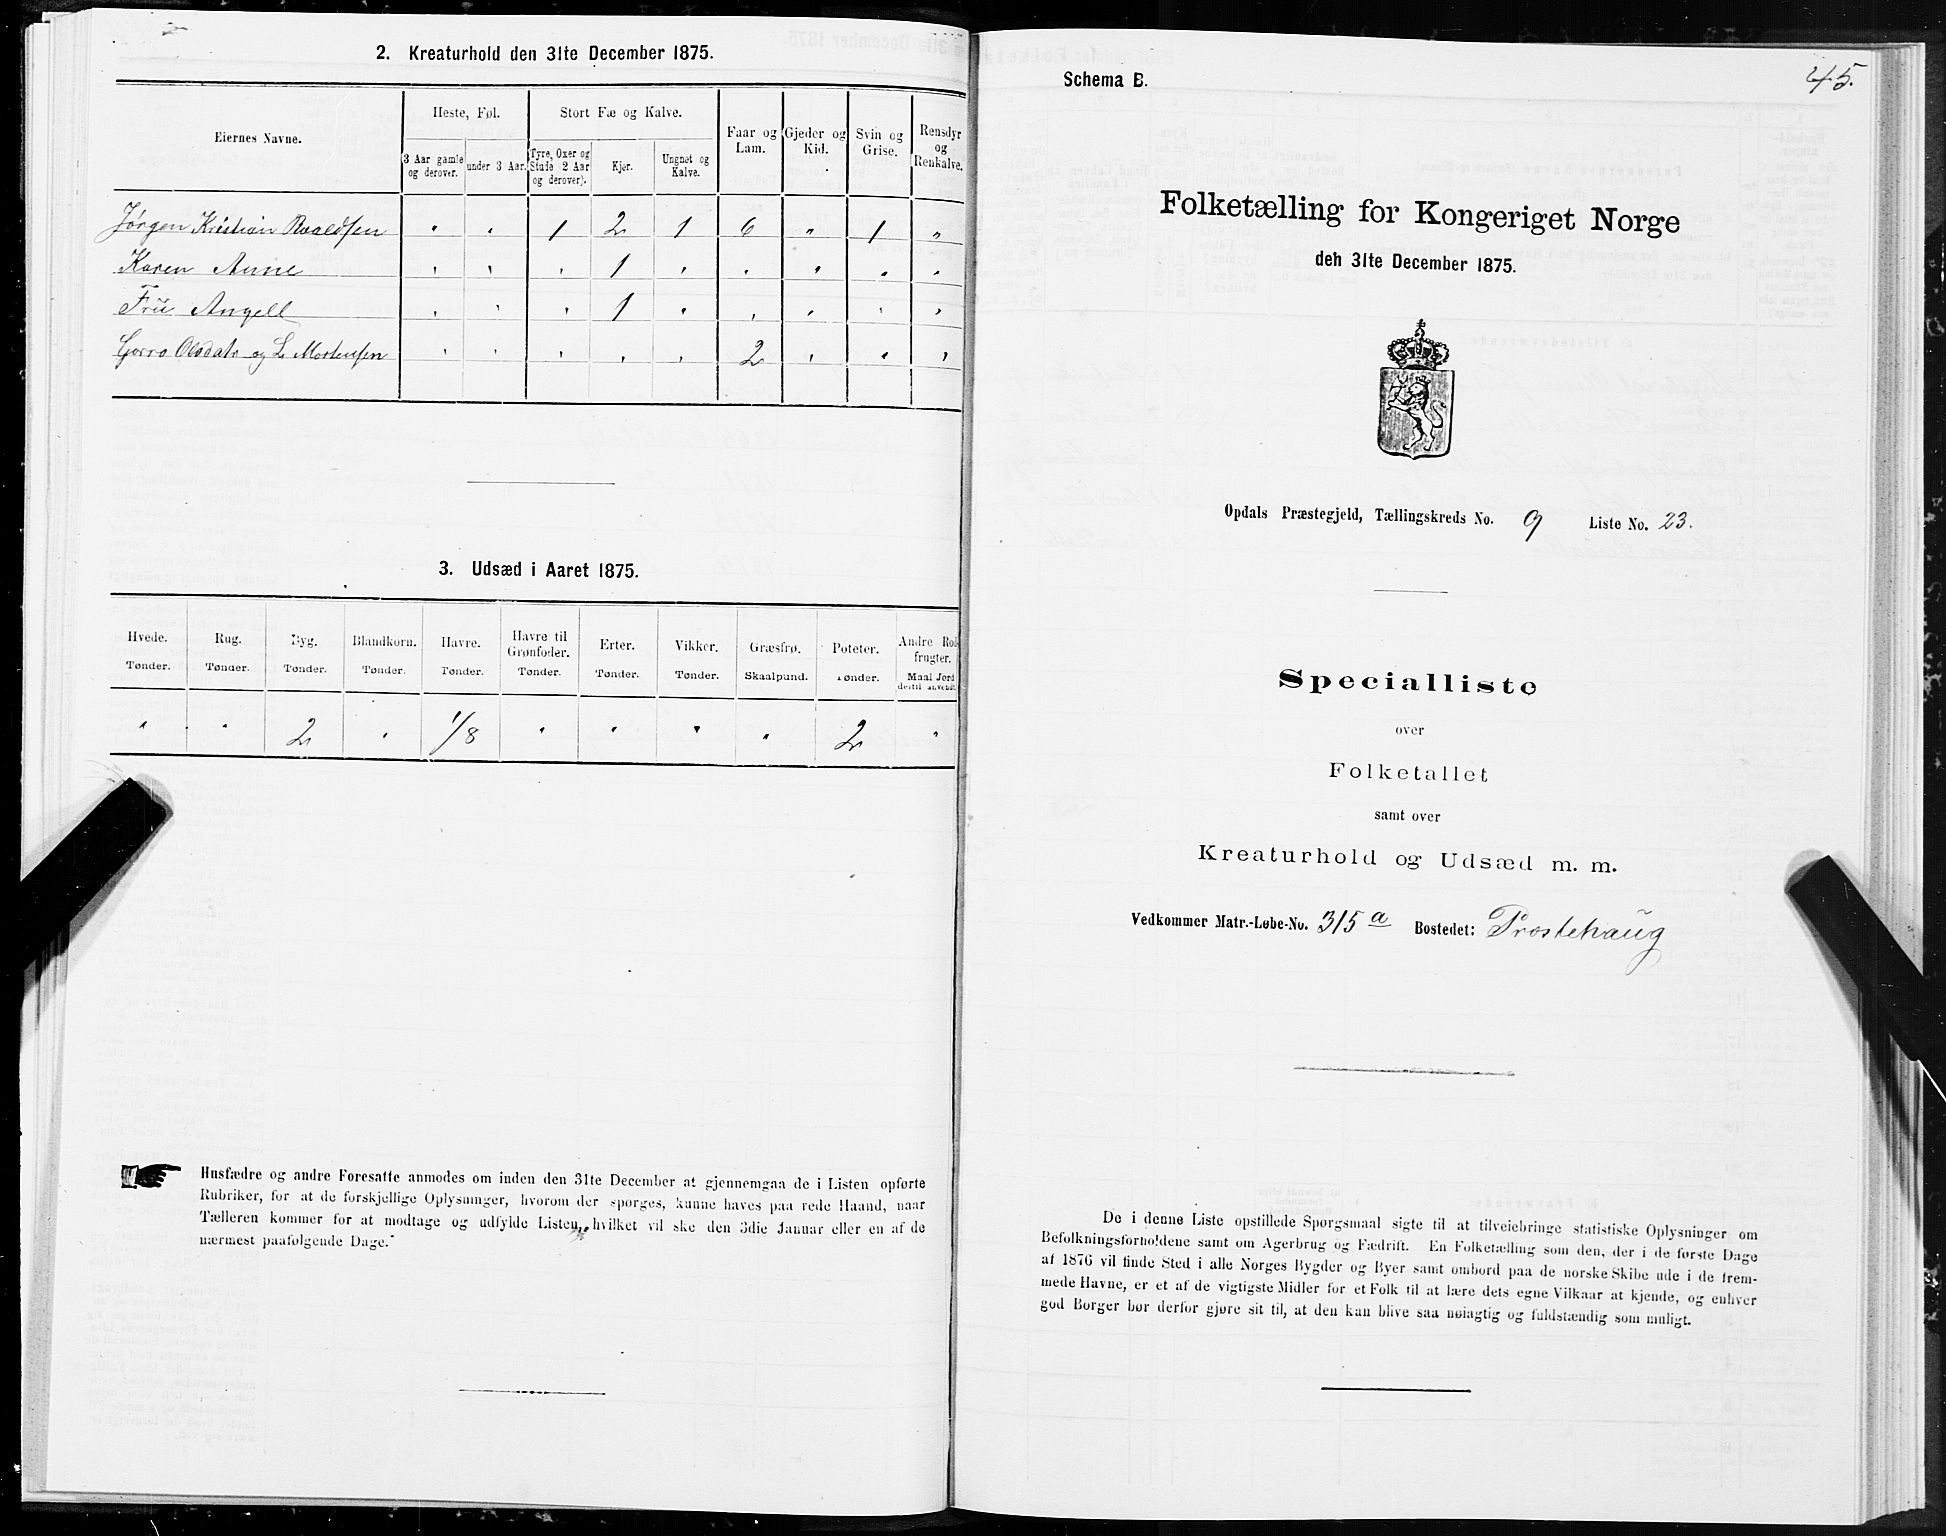 2. Kreaturhold den 31te December 1875.
Eiernes Navne.
Heste, Føl.
Stort Fæ og Kalve.
Faar og Lam.
Gjeder og Kid.
Svin og Grise.
Rensdyr og Renkalve.
3 Aar gamle og derover.
under 3 Aar.
Tyre, Oxer og Stude 2 Aar og derover).
Kjør.
Ungnet og Kalve.
Jørgen Kristian Roaldsen " " 1 2 1 6 " 1 "
Karen Anne " " " 1 " " " " "
Fru Angell " " " 1 " " " " "
og L. Mortensen " " " " " 2 " " "
3. Udsæd i Aaret 1875.
Hvede. Rug. Byg. Blandkorn. Havre. Havre til Grønfoder. Erter. Vikker. Græsfrø. Poteter. Andre Rodfrugter.
Tønder. Tønder. Tønder. Tønder. Tønder. Tønder. Tønder. Tønder. Skaalpund. Tønder. Maal Jord dertil anvendt.
" " 2 " 1/8 " " " " 2 "
Husfædre og andre Foresatte anmodes om inden den 31te December at gjennemgaa de i Listen opførte
Rubriker, for at de forskjellige Oplysninger, hvorom der spørges, kunne haves paa rede Haand, naar
Tælleren kommer for at modtage og udfylde Listen, hvilket vil ske den 3die Januar eller en af de
nærmest paafølgende Dage.
45.
Schema B.
Folketælling for Kongeriget Norge
den 31te December 1875.
Opdals Præstegjeld, Tællingskreds No. 9 Liste No. 23.
Specialliste
over
Folketallet
samt over
Kreaturhold og Udsæd m. m.
Vedkommer Matr.-Løbe-No. 315 a Bostedet: Prostehaug
De i denne Liste opstillede Spørgsmaal sigte til at tilveiebringe statistiske Oplysninger om
Befolkningsforholdene samt om Agerbrug og Fædrift. En Folketælling som den, der i de første Dage
af 1876 vil finde Sted i alle Norges Bygder og Byer samt ombord paa de norske Skibe ude i de frem-
mede Havne, er et af de vigtigste Midler for et Folk til at lære dets egne Vilkaar at kjende, og enhver
god Borger bør derfor gjøre sit til, at den kan blive saa nøiagtig og fuldstændig som muligt.